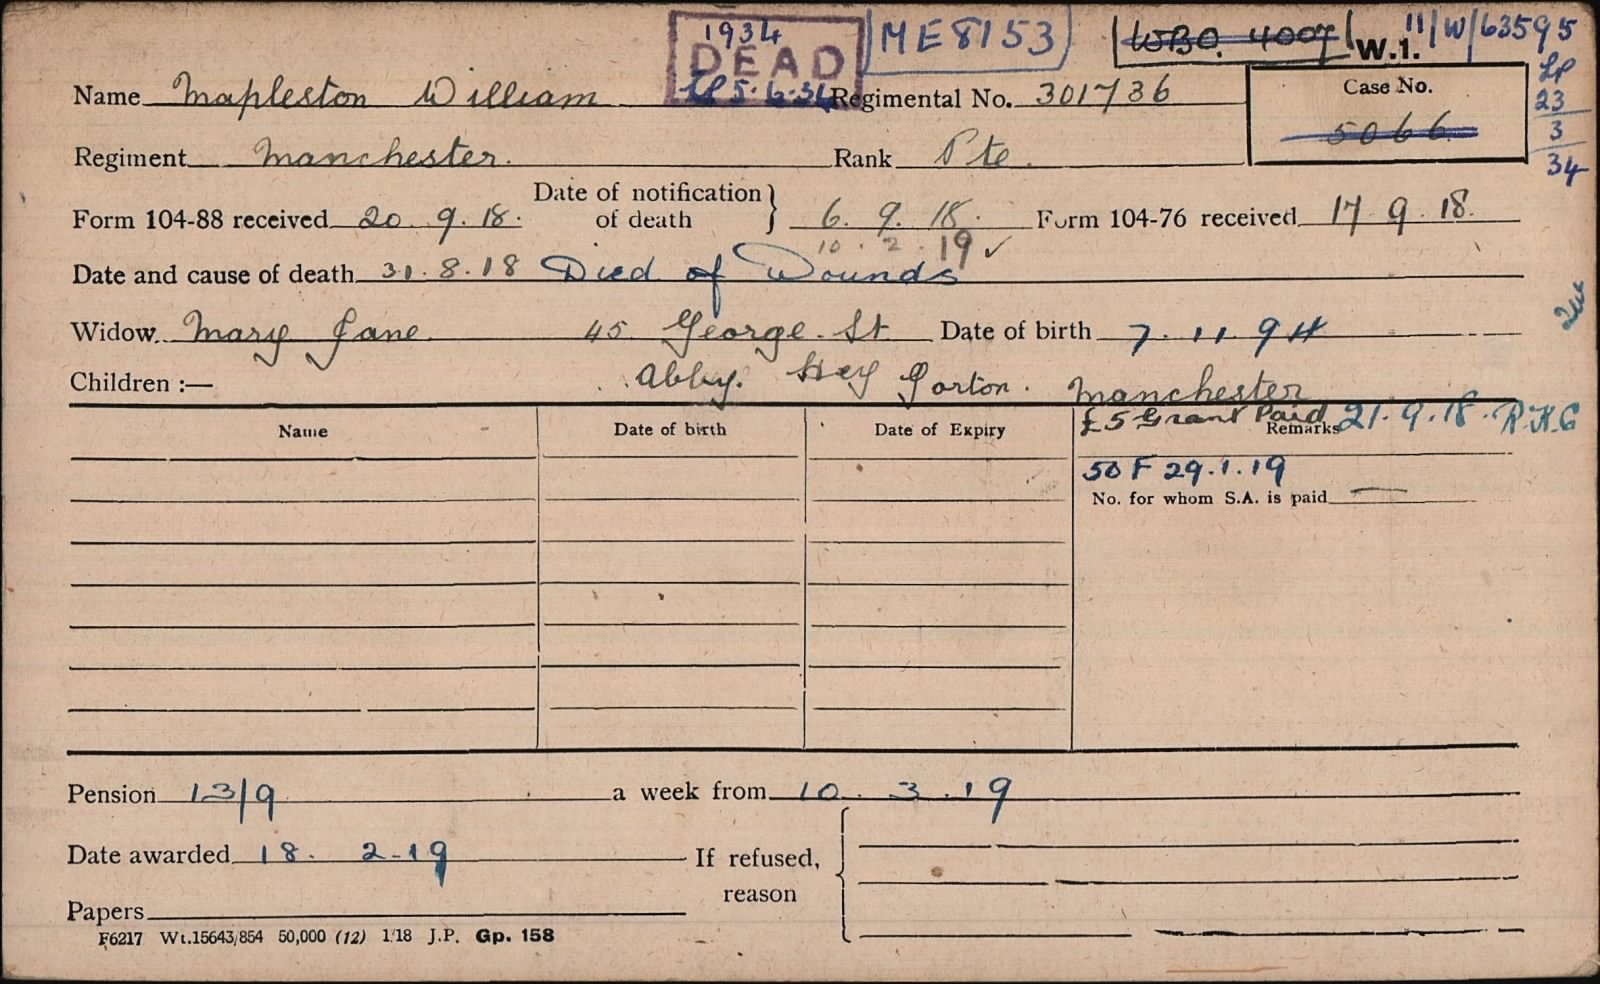 1934 ME8153 WBO. 4007 W.1. 11/W/63595
DEAD
Name Mapleston William 5.6.34 Regimental No. 301736 Case No. LP
5066 23
3
34
Regiment Manchester. Rank Pte.
Form 104-88 received 20.9.18. Date of notification of death } 6.9.18. Form 104-76 received 17 9.18.
10.2.19 ✓
Date and cause of death 31.8.18 Died of Wounds
Widow Mary Jane 45 George St. Date of birth 7.11.94
Children :— Abby. Hey Gorton. Manchester
£5 Grant Paid 21.9.18. R.K.G
Name Date of birth Date of Expiry Remarks
50 F 29.1.19
No. for whom S.A. is paid —
Pension 13/9 a week from 10.3.19
Date awarded 18. 2-19 If refused, reason
Papers
F6217 Wt.15643/854 50,000 (12) 1/18 J.P. Gp. 158